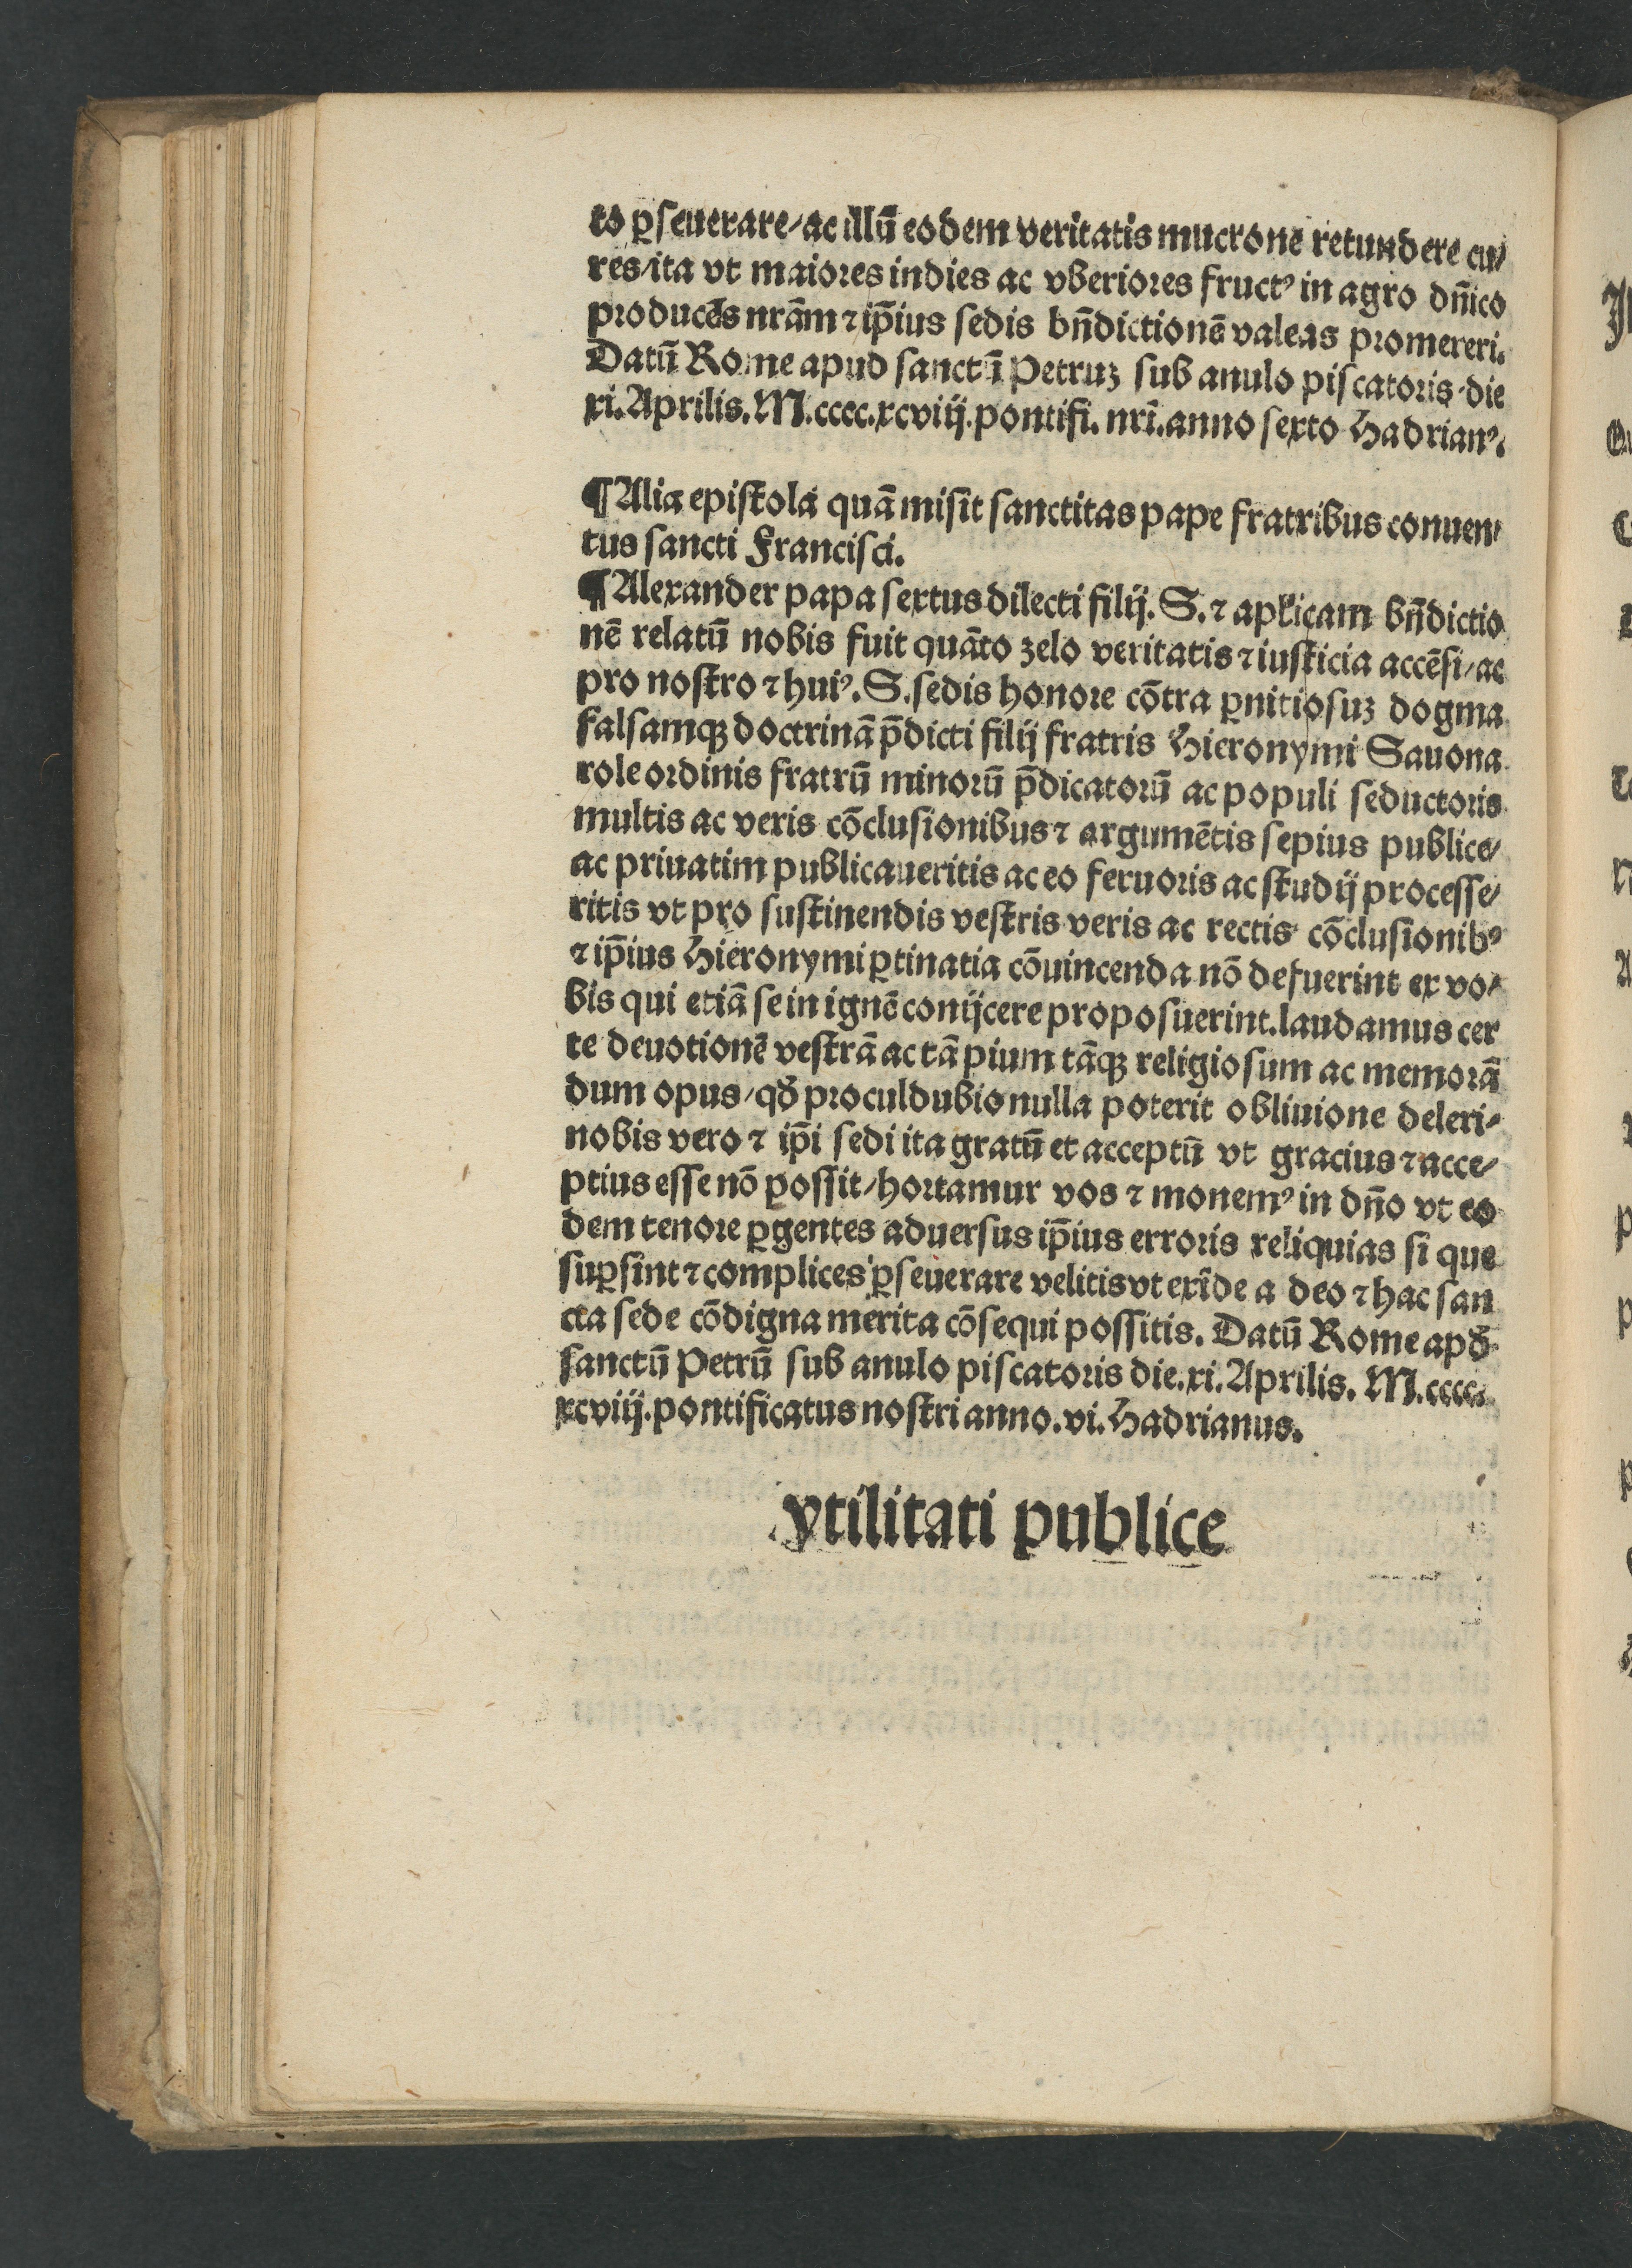 to ꝑſeuerare/ac illū eodem veritatis mucrone retundere cu/
res/ita vt maiores indies ac vberiores fructꝰ in agro dn̄ico
producēs nr̄am ⁊ ip̄ius ſedis bn̄dictionē valeas promereri.
Datū Rome apud ſanctū Petruꝫ ſub anulo piſcatoris die
xi. Aprilis. M.cccc.xcviij. pontifi. nr̄i. anno ſexto Hadrianꝰ.
¶ Alia epiſtola quā miſit ſanctitas pape fratribus conuen/
tus ſancti Franciſci.
¶ Alexander papa ſextus dilecti filij. S. ⁊ apl̄icam bn̄dictio
nē relatū nobis fuit quāto zelo veritatis ⁊ iuſticia accēſi/ac
pro noſtro ⁊ huiꝰ. S. ſedis honore cōtra ꝑnitioſuꝫ dogma
falſamqꝫ doctrinā p̄dicti filij fratris Hieronymi Sauona
role ordinis fratrū minorū p̄dicatorū ac populi ſeductoris
multis ac veris cōcluſionibus ⁊ argumētis ſepius publice/
ac priuatim publicaueritis ac eo feruoris ac ſtudij proceſſe/
ritis vt pro ſuſtinendis veſtris veris ac rectis cōcluſionibꝰ
⁊ ip̄ius Hieronymi ꝑtinatia cōuincenda nō defuerint ex vo/
bis qui etiā ſe in ignē conijcere propoſuerint. laudamus cer
te deuotionē veſtrā ac tā pium tāqꝫ religioſum ac memorā
dum opus/qd̄ proculdubio nulla poterit obliuione deleri/
nobis vero ⁊ ip̄i ſedi ita gratū et acceptū vt gracius ⁊ acce/
ptius eſſe nō poſſit/hortamur vos ⁊ monemꝰ in dn̄o vt eo
dem tenore ꝑgentes aduerſus ip̄ius erroris reliquias ſi que
ſuꝑſint ⁊ complices ꝑſeuerare velitis vt exīde a deo ⁊ hac ſan
cta ſede cōdigna merita cōſequi poſſitis. Datū Rome apd̄
ſanctū Petrū ſub anulo piſcatoris die. xi. Aprilis. M.cccc.
xcviij. pontificatus noſtri anno. vi. Hadrianus.
vtilitati publice